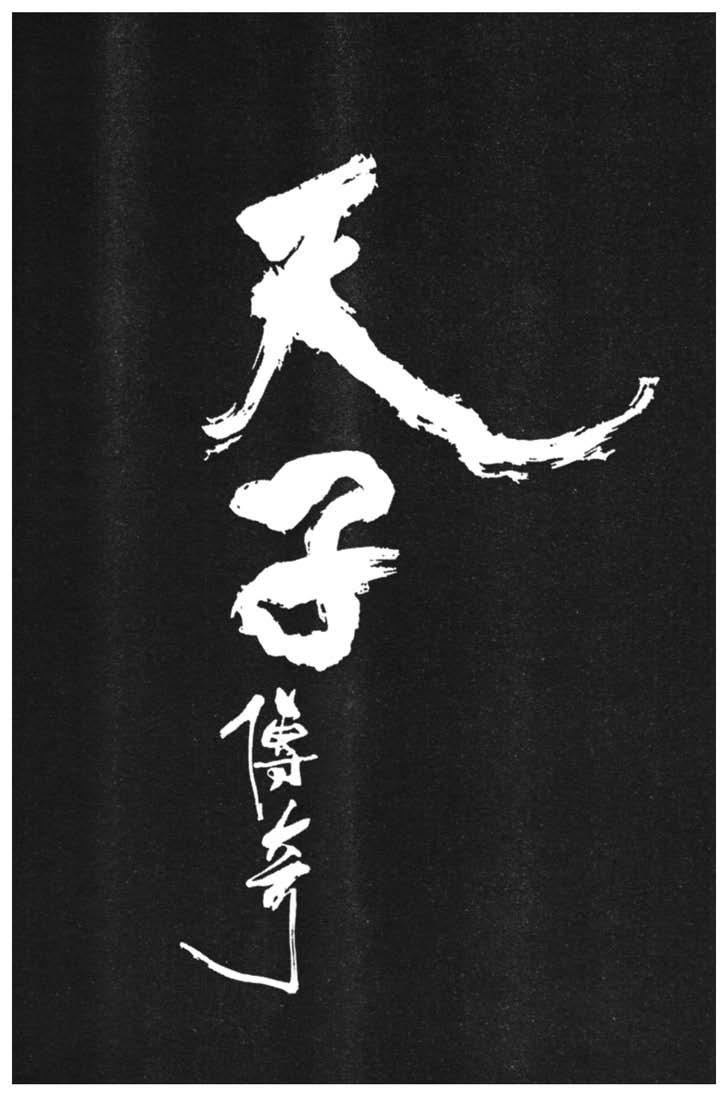 天子傳奇